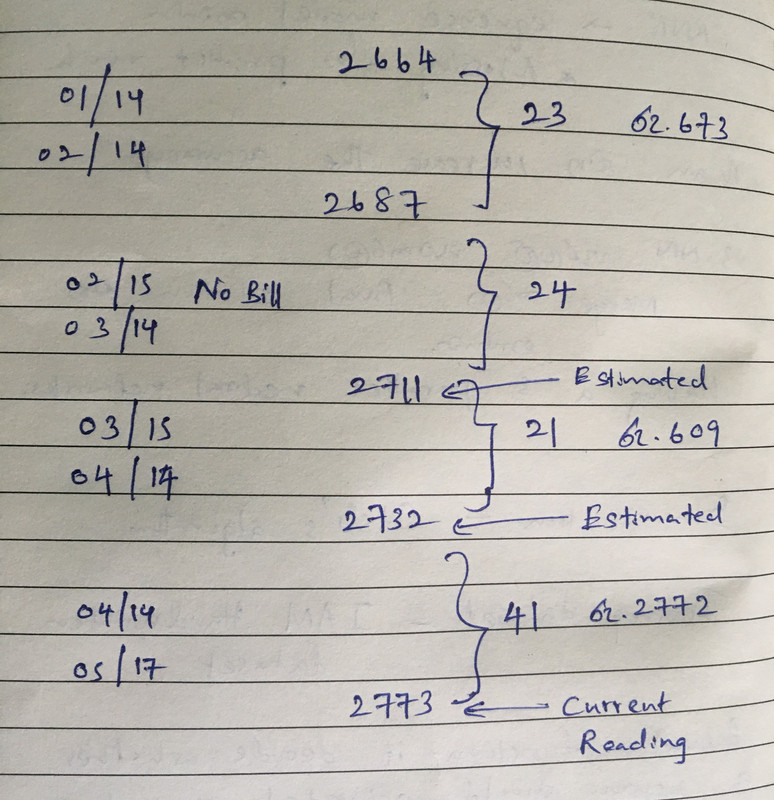 2664
01/14 23 රු.673
02/14
2687
02/15 No Bill 24
03/14
2711 ← Estimated
03/15 21 රු.609
04/14
2732 ← Estimated
04/14 41 රු.2772
05/17
2773 ← Current
Reading